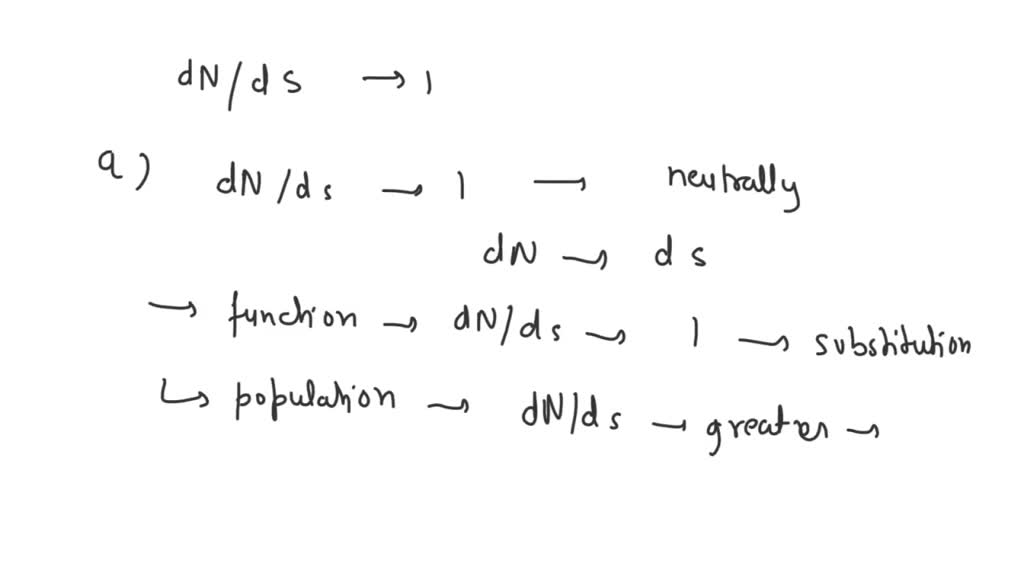 dN/ds → 1
a) dN/ds → 1 — neutrally
dN → ds
→ function → dN/ds → 1 → substitution
↳ population → dN/ds → greater →